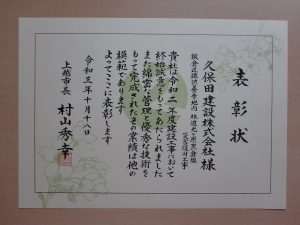 表彰状
久保田建設株式会社 様
災害復旧工事
貴社は令和二年度建設工事において
終始誠意をもってあたられました
また綿密な管理と優秀な技術を
もって完成されたその業績は他の
模範であります
よってここに表彰します
令和三年十月十八日
上越市長 村山秀幸